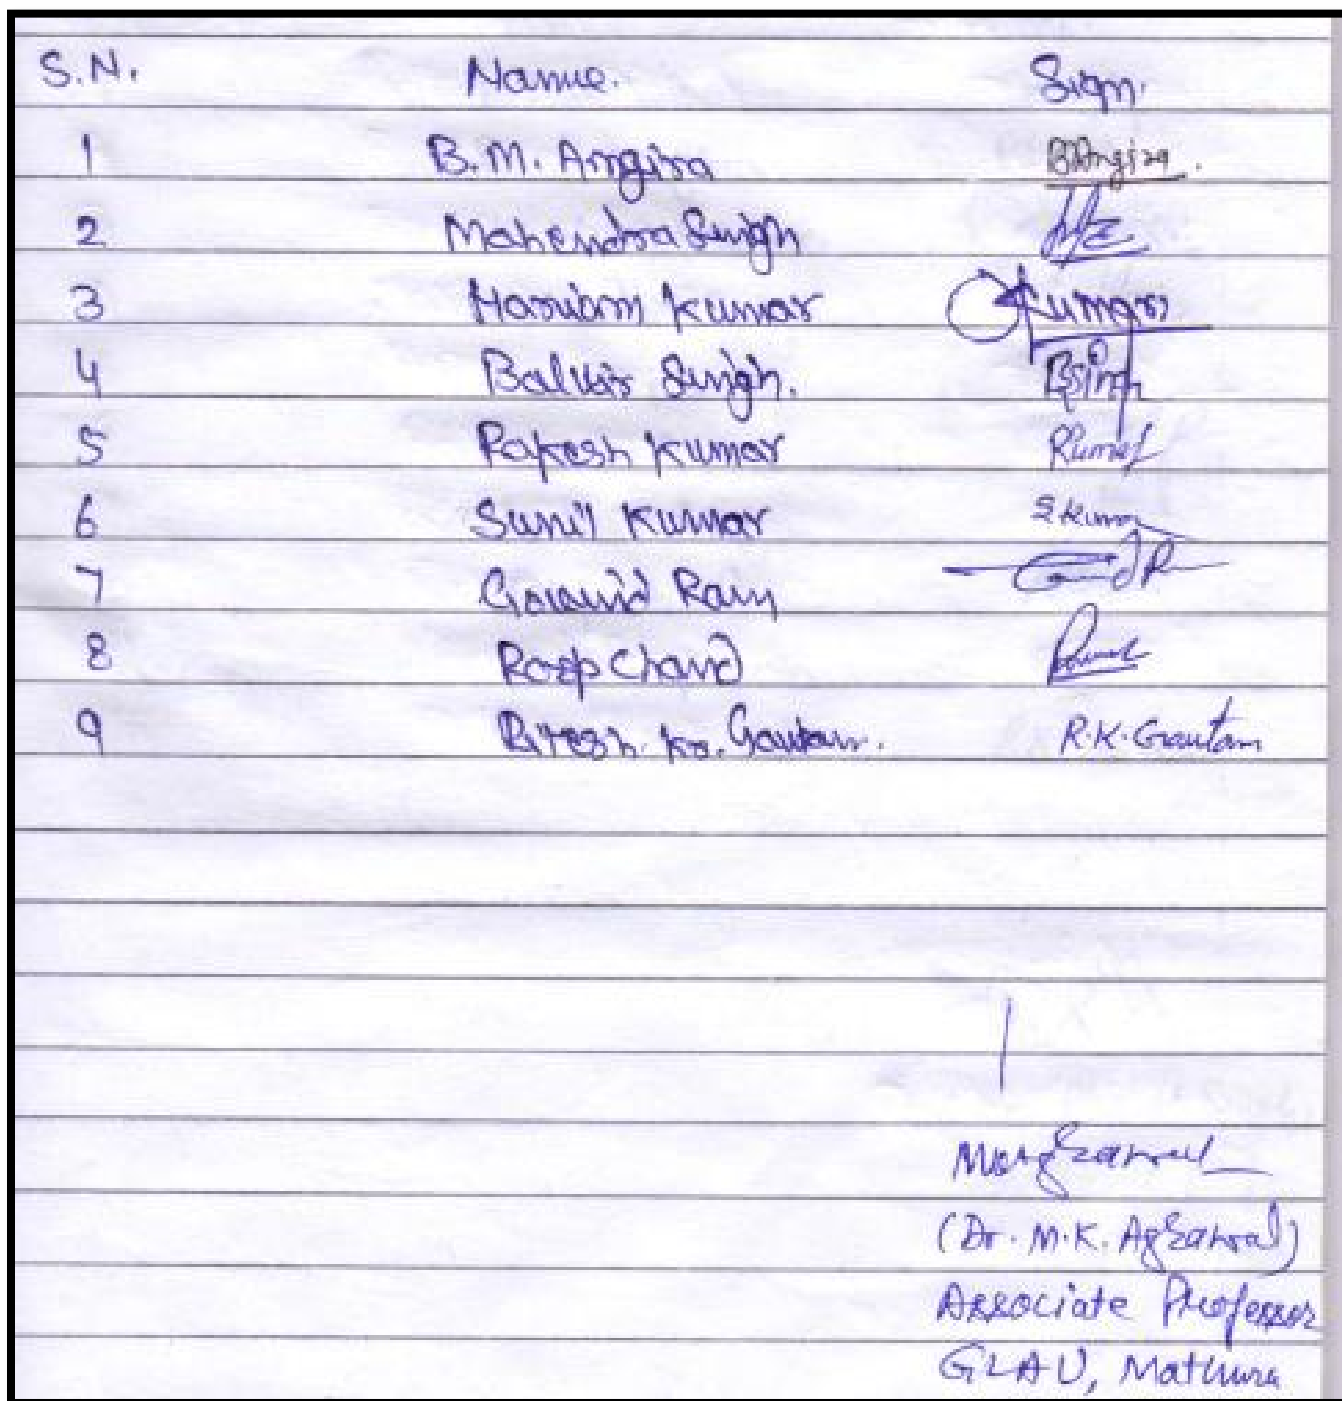 S.N. Name. Sign.
1 B.M. Angira BAngira.
2 Mahendra Singh
3 Kumar Kumar
4 Balbir Singh. BSingh
5 Rakesh Kumar RKumar
6 Sunil Kumar S Kumar
7 Govind Ram
8 Roop Chand
9 Ritesh. Kr. Gautam. R.K. Gautam
(Dr. M.K. Agrawal)
Associate Professor
GLAU, Mathura